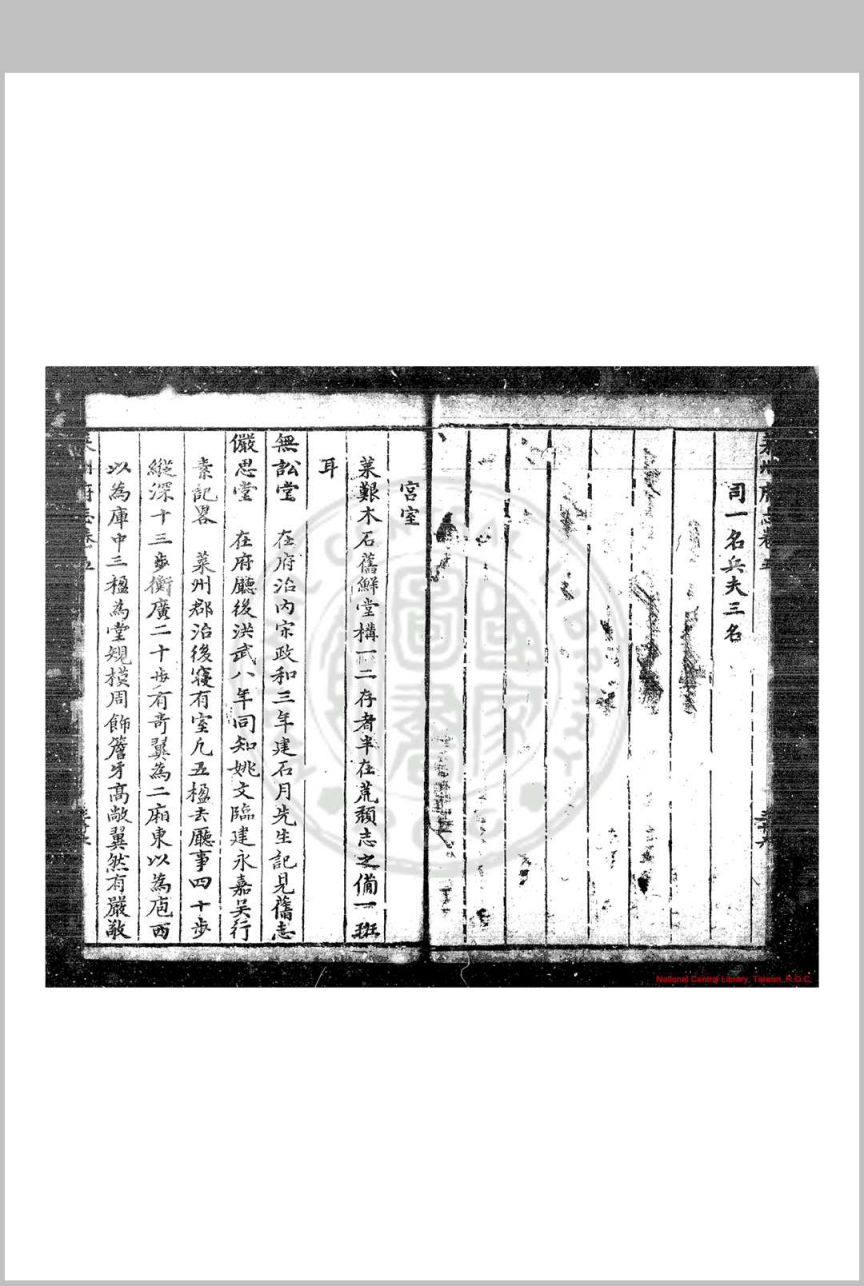 萊州府志卷五
司一名兵夫三名
宮室
萊艱木石舊鮮堂構一二存者半在荒頹志之備一班
耳
無訟堂 在府治內宋政和三年建石月先生記見舊志
儼思堂 在府廳後洪武八年同知姚文臨建永嘉吳行
素記畧 萊州郡治後寢有室凡五楹去廳事四十步
縱深十三步衡廣二十步有奇翼為二廂東以為庖西
以為庫中三楹為堂規模周飾簷牙高敞翼然有嚴敬
萊州府志卷五
National Central Library, Taiwan, R.O.C.